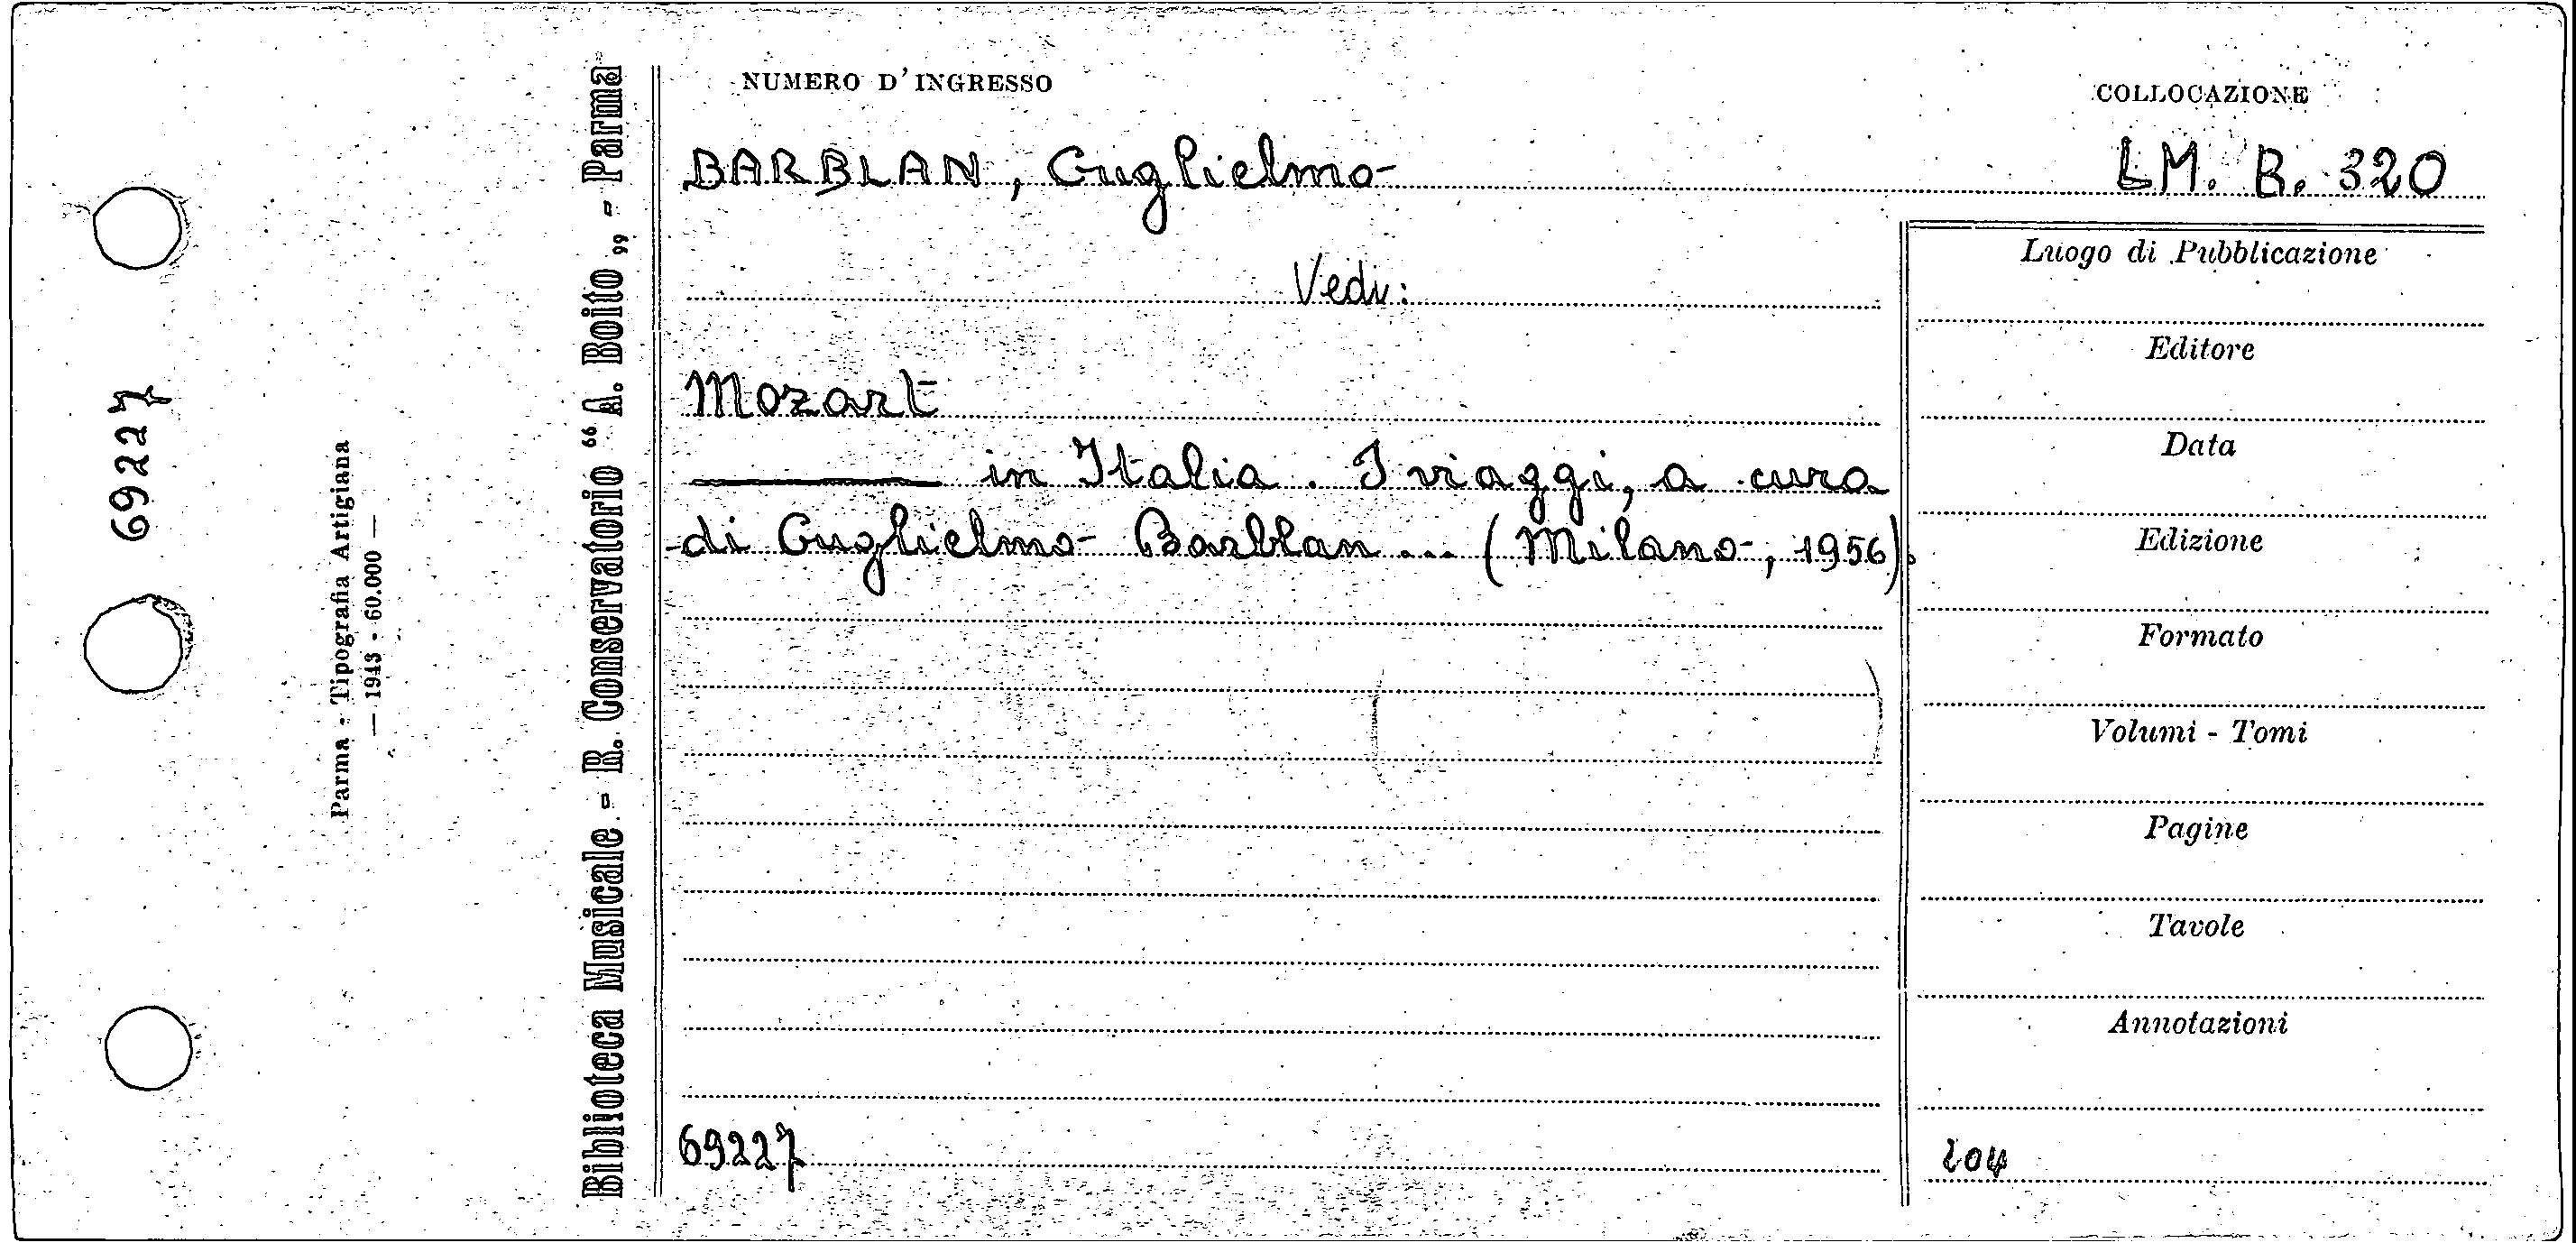 69227
Parma - Tipografia Artigiana
— 1943 - 60.000 —
Biblioteca Musicale - R. Conservatorio “ A. Boito „ - Parma
NUMERO D'INGRESSO
COLLOCAZIONE
BARBLAN, Guglielmo
LM. B. 320
Vedi:
Mozart
——— in Italia. I viaggi, a cura
di Guglielmo Barblan ... (Milano, 1956).
69227
Luogo di Pubblicazione
Editore
Data
Edizione
Formato
Volumi - Tomi
Pagine
Tavole
Annotazioni